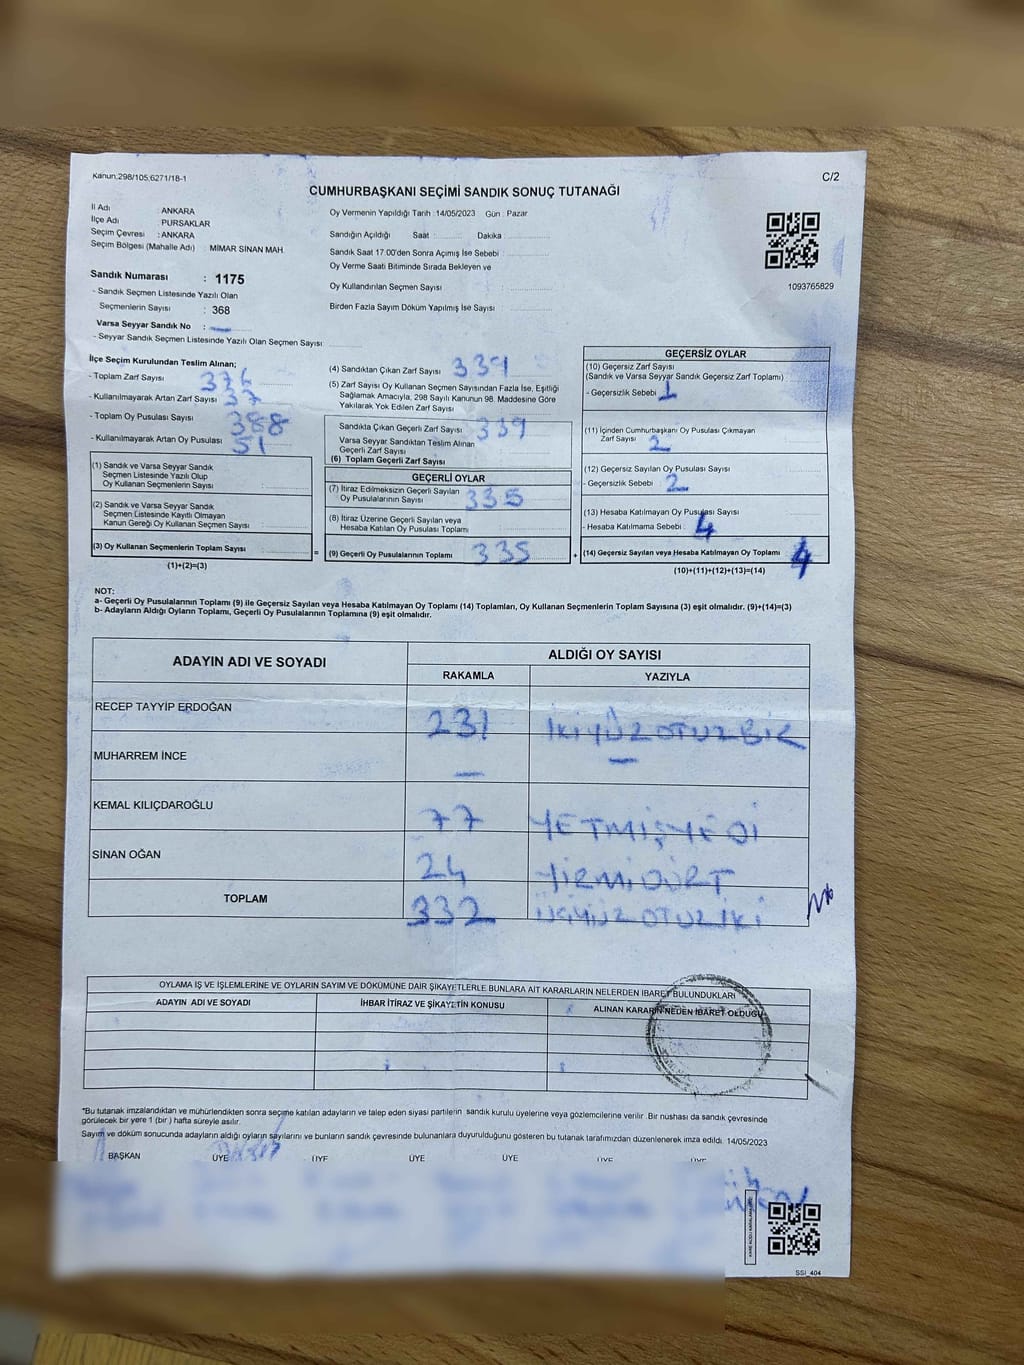 Kanun.298/105,6271/18-1
C/2
CUMHURBAŞKANI SEÇİMİ SANDIK SONUÇ TUTANAĞI
İl Adı : ANKARA
İlçe Adı : PURSAKLAR
Seçim Çevresi : ANKARA
Seçim Bölgesi (Mahalle Adı) : MİMAR SİNAN MAH.
Sandık Numarası : 1175
- Sandık Seçmen Listesinde Yazılı Olan
Seçmenlerin Sayısı : 368
Varsa Seyyar Sandık No : —
- Seyyar Sandık Seçmen Listesinde Yazılı Olan Seçmen Sayısı
Oy Vermenin Yapıldığı Tarih : 14/05/2023 Gün : Pazar
Sandığın Açıldığı Saat : Dakika :
Sandık Saat 17.00'den Sonra Açılmış İse Sebebi :
Oy Verme Saati Bitiminde Sırada Bekleyen ve
Oy Kullandırılan Seçmen Sayısı :
Birden Fazla Sayım Döküm Yapılmış İse Sayısı :
1093765829
İlçe Seçim Kurulundan Teslim Alınan;
- Toplam Zarf Sayısı 376
- Kullanılmayarak Artan Zarf Sayısı 37
- Toplam Oy Pusulası Sayısı 388
- Kullanılmayarak Artan Oy Pusulası 51
(1) Sandık ve Varsa Seyyar Sandık
Seçmen Listesinde Yazılı Olup
Oy Kullanan Seçmenlerin Sayısı :
(2) Sandık ve Varsa Seyyar Sandık
Seçmen Listesinde Kayıtlı Olmayan
Kanun Gereği Oy Kullanan Seçmen Sayısı :
(3) Oy Kullanan Seçmenlerin Toplam Sayısı :
(1)+(2)=(3)
(4) Sandıktan Çıkan Zarf Sayısı 339
(5) Zarf Sayısı Oy Kullanan Seçmen Sayısından Fazla İse, Eşitliği
Sağlamak Amacıyla, 298 Sayılı Kanunun 98. Maddesine Göre
Yakılarak Yok Edilen Zarf Sayısı
Sandıkta Çıkan Geçerli Zarf Sayısı : 339
Varsa Seyyar Sandıktan Teslim Alınan
Geçerli Zarf Sayısı
(6) Toplam Geçerli Zarf Sayısı
GEÇERLİ OYLAR
(7) İtiraz Edilmeksizin Geçerli Sayılan
Oy Pusulalarının Sayısı : 335
(8) İtiraz Üzerine Geçerli Sayılan veya
Hesaba Katılan Oy Pusulası Toplamı
= (9) Geçerli Oy Pusulalarının Toplamı : 335 +
GEÇERSİZ OYLAR
(10) Geçersiz Zarf Sayısı
(Sandık ve Varsa Seyyar Sandık Geçersiz Zarf Toplamı)
- Geçersizlik Sebebi 1
(11) İçinden Cumhurbaşkanı Oy Pusulası Çıkmayan
Zarf Sayısı 2
(12) Geçersiz Sayılan Oy Pusulası Sayısı
- Geçersizlik Sebebi : 2
(13) Hesaba Katılmayan Oy Pusulası Sayısı
- Hesaba Katılmama Sebebi : 4
(14) Geçersiz Sayılan veya Hesaba Katılmayan Oy Toplamı 4
(10)+(11)+(12)+(13)=(14)
NOT:
a- Geçerli Oy Pusulalarının Toplamı (9) ile Geçersiz Sayılan veya Hesaba Katılmayan Oy Toplamı (14) Toplamları, Oy Kullanan Seçmenlerin Toplam Sayısına (3) eşit olmalıdır. (9)+(14)=(3)
b- Adayların Aldığı Oyların Toplamı, Geçerli Oy Pusulalarının Toplamına (9) eşit olmalıdır.
ADAYIN ADI VE SOYADI
ALDIĞI OY SAYISI
RAKAMLA YAZIYLA
RECEP TAYYİP ERDOĞAN 231 İKİYÜZOTUZBİR
MUHARREM İNCE — —
KEMAL KILIÇDAROĞLU 77 YETMİŞYEDİ
SİNAN OĞAN 24 YİRMİDÖRT
TOPLAM 332 ÜÇYÜZOTUZİKİ
OYLAMA İŞ VE İŞLEMLERİNE VE OYLARIN SAYIM VE DÖKÜMÜNE DAİR ŞİKAYETLERLE BUNLARA AİT KARARLARIN NELERDEN İBARET BULUNDUKLARI
ADAYIN ADI VE SOYADI İHBAR İTİRAZ VE ŞİKAYETİN KONUSU ALINAN KARARIN NEDEN İBARET OLDUĞU
*Bu tutanak imzalandıktan ve mühürlendikten sonra seçime katılan adayların ve talep eden siyasi partilerin sandık kurulu üyelerine veya gözlemcilerine verilir. Bir nüshası da sandık çevresinde
görülecek bir yere 1 (bir) hafta süreyle asılır.
Sayım ve döküm sonucunda adayların aldığı oyların sayılarını ve bunların sandık çevresinde bulunanlara duyurulduğunu gösteren bu tutanak tarafımızdan düzenlenerek imza edildi. 14/05/2023
BAŞKAN ÜYE ÜYE ÜYE ÜYE ÜYE ÜYE
SSI_404